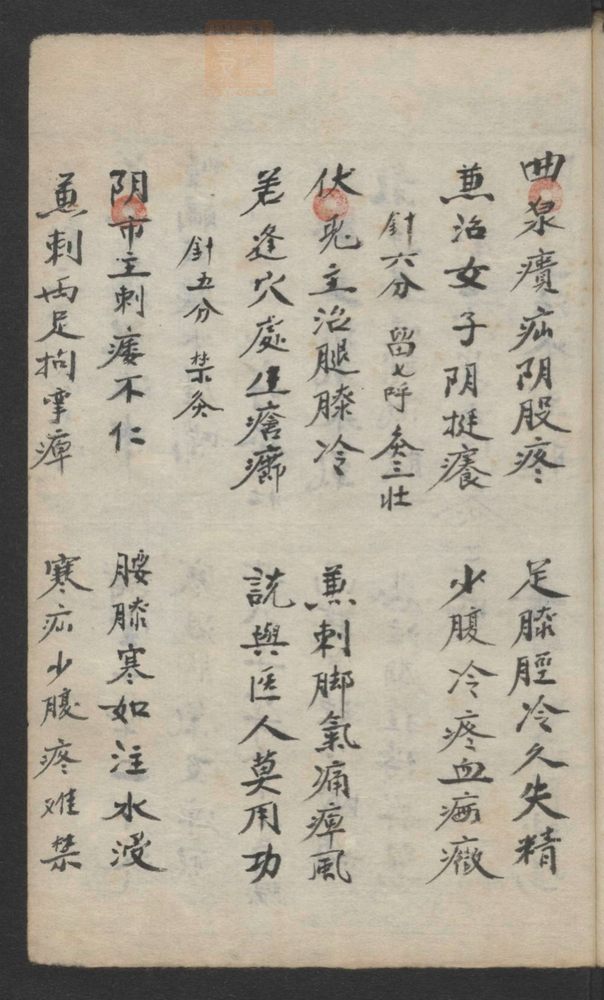 曲泉㿉疝阴股疼 足膝脛冷久失精
兼治女子阴挺癢 少腹冷疼血病癥
針六分 留七呼 灸三壮
伏兎主治腿膝冷 兼刺脚氣痛痺風
若逢穴處生瘡癤 説與医人莫用功
針五分 禁灸
阴市主刺痿不仁 腰膝寒如注水浸
兼刺两足拘挛痺 寒疝少腹疼难禁